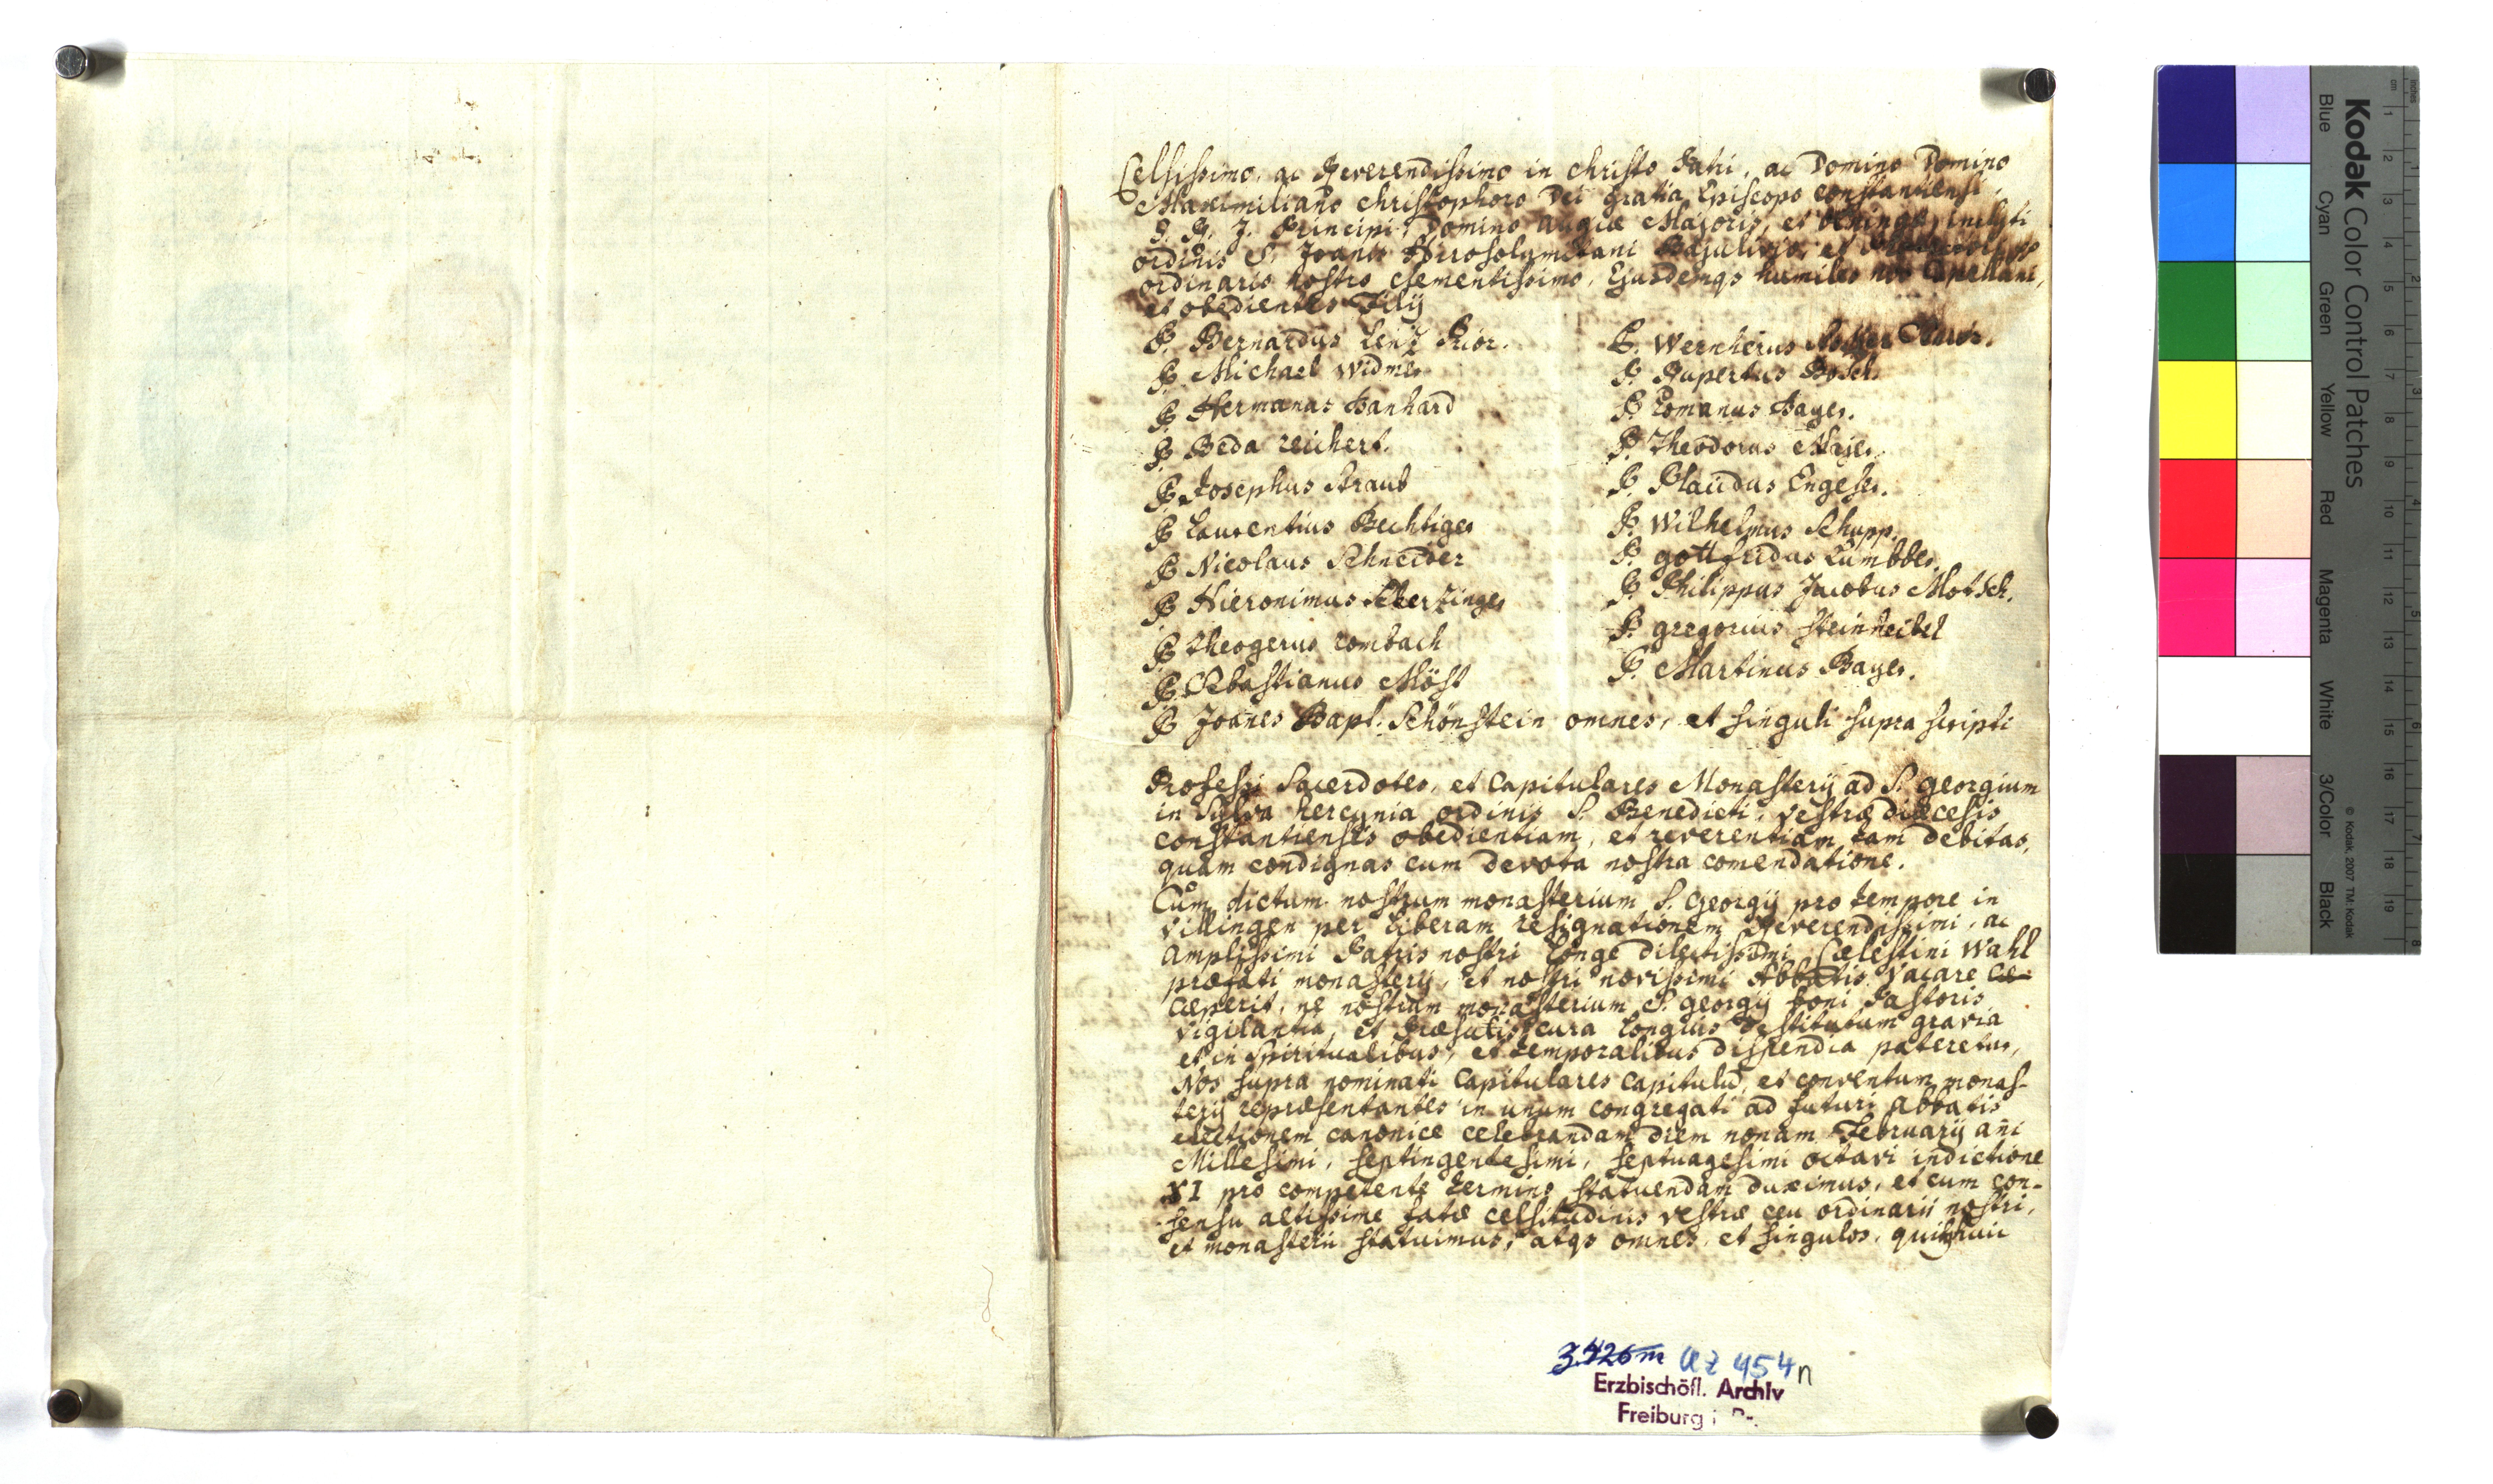 Celsissimo, ac Reverendissimo in christo Patri, ac Domino Domino
Maximiliano christophoro Dei gratia Episcopo constantiensi,
S. R. J. Principi, Domino Augiæ Majoris, et öhningæ, inclyti
ordinis S. Joanis Hierosolymitani Bajulivo, et
ordinario nostro clementissimo, Ejusdemqs humiles nos Capellani,
et obedientes Filij
P. Bernardus Lenz Prior.
P. Michael Widmer
P. Hermanus Banhard
P. Beda reichert.
P. Josephus Straub
P. Laurentius Bechtiger
P. Nicolaus Schneider
P. Hieronimus Scherzinger
P. Theogerus rombach
P. Sebastianus Möst
P. Joanes Bapt. Schönstein omnes, et singuli supra scripti
P. Wernherus
P. Rupertus Bosch.
P. Romanus Bayer.
P. Theodorus Majer.
P. Placidus Engesser.
P. Wilhelmus Schupp.
P. gottfridus Lumbber.
P. Philippus Jacobus Motsch.
P. gregorius Steinheibel
P. Martinus Bayer.
Professi Sacerdotes, et Capitulares Monasterij ad S. georgium
in Sylva hercynia ordinis S. Benedicti, vestræ diæcesis
constantiensis obedientiam, et reverentiam tam debitas,
quam condignas cum devota nostra comendatione.
Cum dictum nostrum monasterium S. Georgij pro tempore in
Villingen per liberam resignationem Reverendissimi, ac
amplissimi Patris nostri longe dilectissimi Cælestini Wahl
præfati monasterij, et nostri novissimi Abbatis vacare cæ-
cæperit, ne nostrum monasterium S. georgij boni Pastoris
vigilantia, et Præsulis cura longius destitutum gravia
et in Spiritualibus, et temporalibus dispendia pateretur,
Nos supra nominati Capitulares capitulū, et conventum monas-
terij repræsentantes in unum congregati ad futuri abbatis
electionem canonice celebrandam diem nonam Februarij añi
Millesimi, septingentesimi, septuagesimi octavi indictione
XI pro competente termino statuendam duximus, et cum con-
-sensu altissime fatæ celsitudinis vestræ ceu ordinarii nostri,
et monasterii statuimus, atqs omnes, et singulos, qui huic
3.426m Uz 454n
Erzbischöfl. Archiv
Freiburg i. Br.
Kodak Color Control Patches
Blue Cyan Green Yellow Red Magenta White 3/Color Black
© Kodak, 2007 TM: Kodak
inches 1 2 3 4 5 6 7 8
cm 1 2 3 4 5 6 7 8 9 10 11 12 13 14 15 16 17 18 19